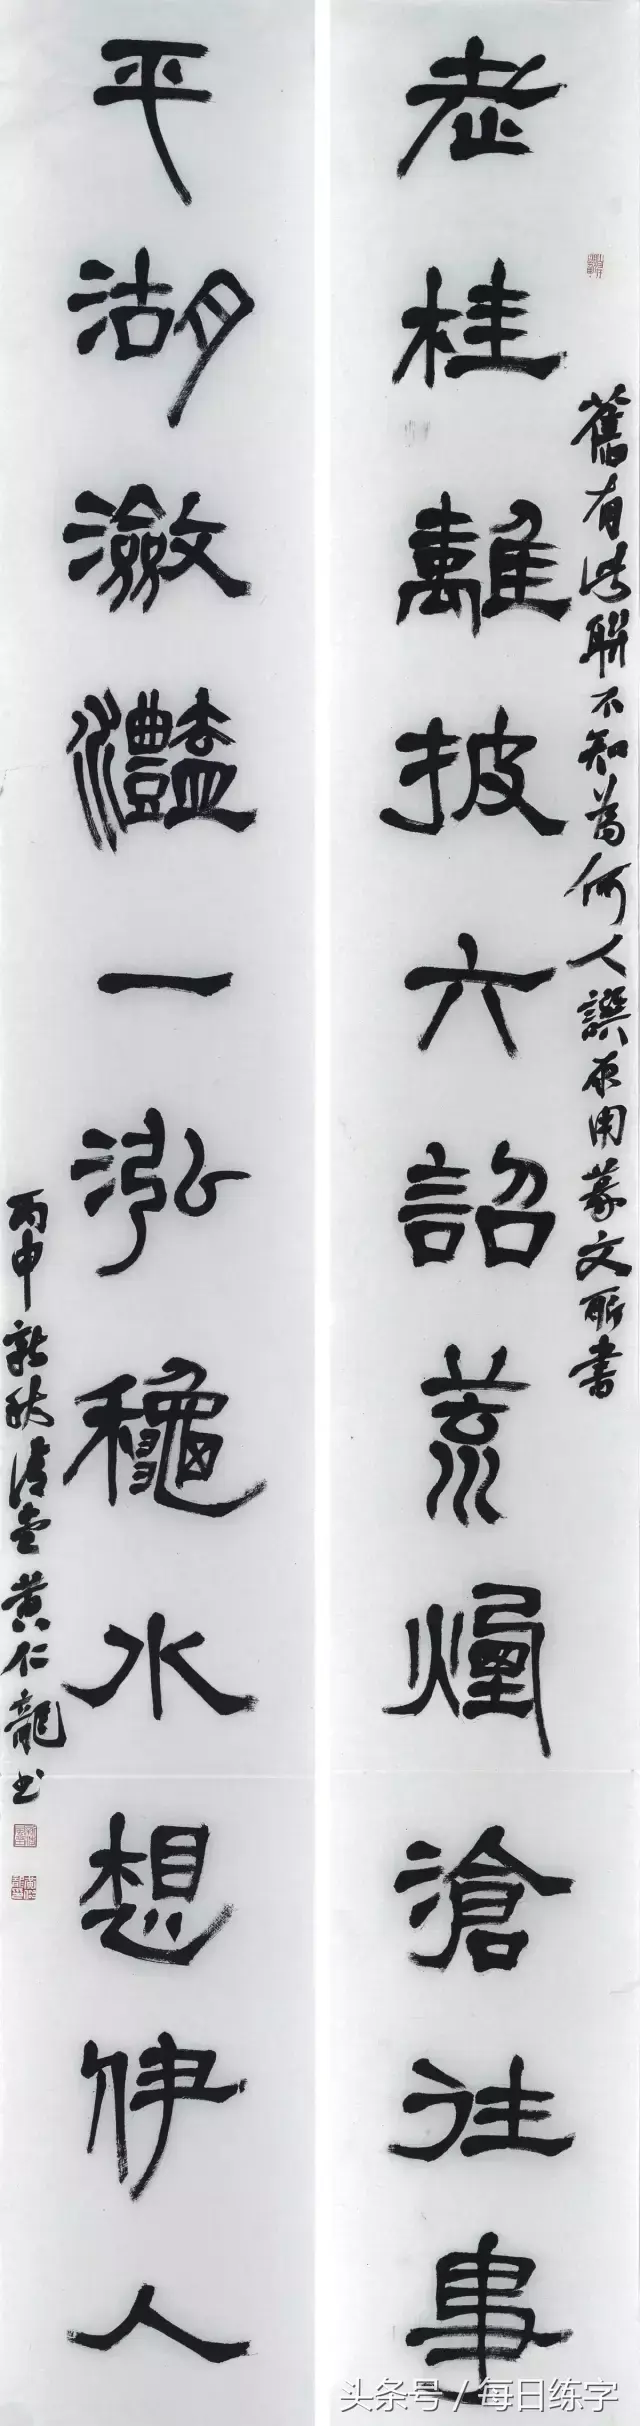 老桂離披六詔荒煙滄往事
舊有此聯不知為何人譔原用篆文所書
平湖瀲灩一泓穐水想伊人
丙申新秋黄仁龍书
头条号 / 每日练字